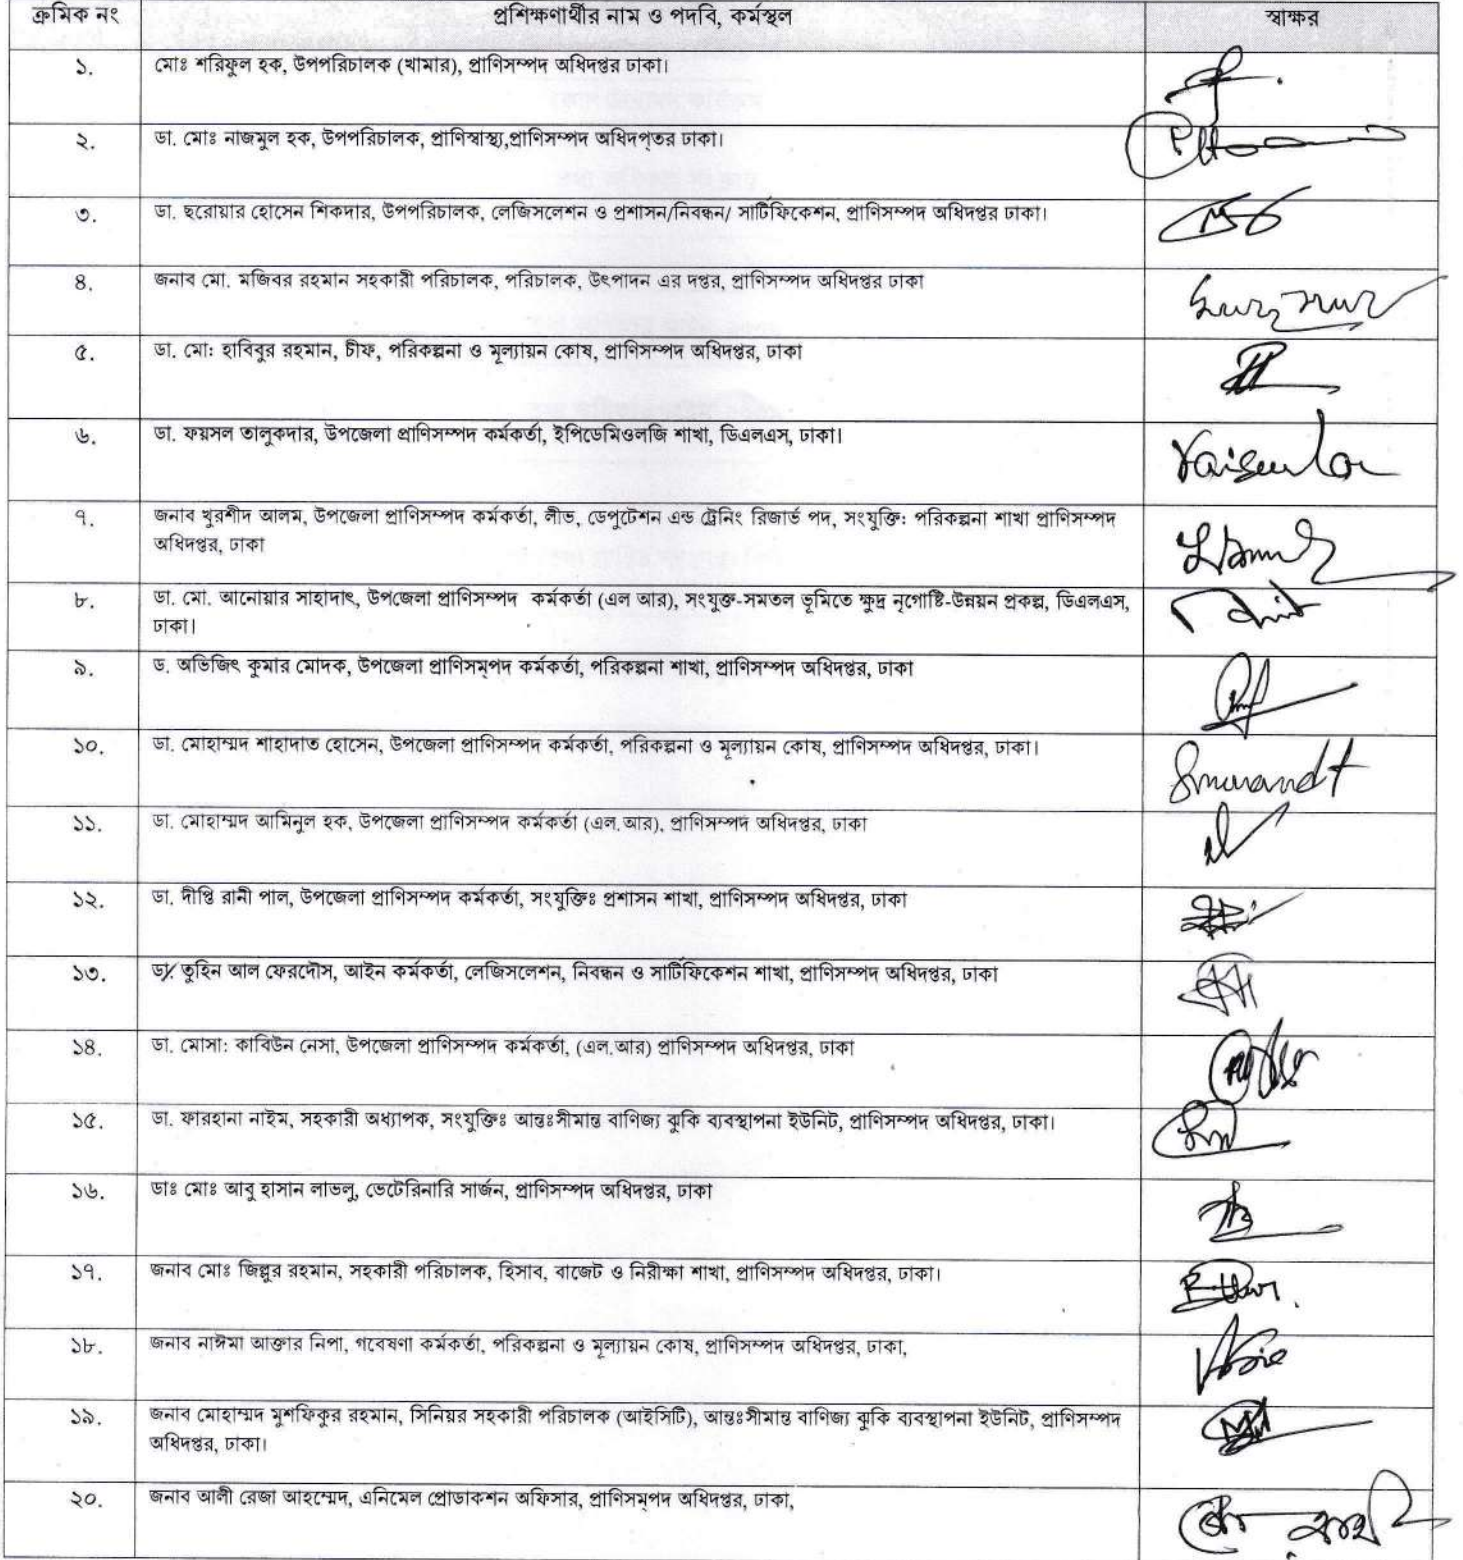 ক্রমিক নং প্রশিক্ষণার্থীর নাম ও পদবি, কর্মস্থল স্বাক্ষর
১. মোঃ শরিফুল হক, উপপরিচালক (খামার), প্রাণিসম্পদ অধিদপ্তর ঢাকা।
২. ডা. মোঃ নাজমুল হক, উপপরিচালক, প্রাণিস্বাস্থ্য,প্রাণিসম্পদ অধিদপ্‌তর ঢাকা।
৩. ডা. ছরোয়ার হোসেন শিকদার, উপপরিচালক, লেজিসলেশন ও প্রশাসন/নিবন্ধন/ সার্টিফিকেশন, প্রাণিসম্পদ অধিদপ্তর ঢাকা।
৪. জনাব মো. মজিবর রহমান সহকারী পরিচালক, পরিচালক, উৎপাদন এর দপ্তর, প্রাণিসম্পদ অধিদপ্তর ঢাকা
৫. ডা. মো: হাবিবুর রহমান, চীফ, পরিকল্পনা ও মূল্যায়ন কোষ, প্রাণিসম্পদ অধিদপ্তর, ঢাকা
৬. ডা. ফয়সল তালুকদার, উপজেলা প্রাণিসম্পদ কর্মকর্তা, ইপিডেমিওলজি শাখা, ডিএলএস, ঢাকা।
৭. জনাব খুরশীদ আলম, উপজেলা প্রাণিসম্পদ কর্মকর্তা, লীভ, ডেপুটেশন এন্ড ট্রেনিং রিজার্ভ পদ, সংযুক্তি: পরিকল্পনা শাখা প্রাণিসম্পদ
অধিদপ্তর, ঢাকা
৮. ডা. মো. আনোয়ার সাহাদাৎ, উপজেলা প্রাণিসম্পদ কর্মকর্তা (এল আর), সংযুক্ত-সমতল ভূমিতে ক্ষুদ্র নৃগোষ্টি-উন্নয়ন প্রকল্প, ডিএলএস,
ঢাকা।
৯. ড. অভিজিৎ কুমার মোদক, উপজেলা প্রাণিসম্‌পদ কর্মকর্তা, পরিকল্পনা শাখা, প্রাণিসম্পদ অধিদপ্তর, ঢাকা
১০. ডা. মোহাম্মদ শাহাদাত হোসেন, উপজেলা প্রাণিসম্পদ কর্মকর্তা, পরিকল্পনা ও মূল্যায়ন কোষ, প্রাণিসম্পদ অধিদপ্তর, ঢাকা।
১১. ডা. মোহাম্মদ আমিনুল হক, উপজেলা প্রাণিসম্পদ কর্মকর্তা (এল.আর), প্রাণিসম্পদ অধিদপ্তর, ঢাকা
১২. ডা. দীপ্তি রানী পাল, উপজেলা প্রাণিসম্পদ কর্মকর্তা, সংযুক্তিঃ প্রশাসন শাখা, প্রাণিসম্পদ অধিদপ্তর, ঢাকা
১৩. ডা. তুহিন আল ফেরদৌস, আইন কর্মকর্তা, লেজিসলেশন, নিবন্ধন ও সার্টিফিকেশন শাখা, প্রাণিসম্পদ অধিদপ্তর, ঢাকা
১৪. ডা. মোসা: কাবিউন নেসা, উপজেলা প্রাণিসম্পদ কর্মকর্তা, (এল.আর) প্রাণিসম্পদ অধিদপ্তর, ঢাকা
১৫. ডা. ফারহানা নাইম, সহকারী অধ্যাপক, সংযুক্তিঃ আন্তঃসীমান্ত বাণিজ্য ঝুকি ব্যবস্থাপনা ইউনিট, প্রাণিসম্পদ অধিদপ্তর, ঢাকা।
১৬. ডাঃ মোঃ আবু হাসান লাভলু, ভেটেরিনারি সার্জন, প্রাণিসম্পদ অধিদপ্তর, ঢাকা
১৭. জনাব মোঃ জিল্লুর রহমান, সহকারী পরিচালক, হিসাব, বাজেট ও নিরীক্ষা শাখা, প্রাণিসম্পদ অধিদপ্তর, ঢাকা।
১৮. জনাব নাঈমা আক্তার নিপা, গবেষণা কর্মকর্তা, পরিকল্পনা ও মূল্যায়ন কোষ, প্রাণিসম্পদ অধিদপ্তর, ঢাকা,
১৯. জনাব মোহাম্মদ মুশফিকুর রহমান, সিনিয়র সহকারী পরিচালক (আইসিটি), আন্তঃসীমান্ত বাণিজ্য ঝুকি ব্যবস্থাপনা ইউনিট, প্রাণিসম্পদ
অধিদপ্তর, ঢাকা।
২০. জনাব আলী রেজা আহম্মেদ, এনিমেল প্রোডাকশন অফিসার, প্রাণিসম্‌পদ অধিদপ্তর, ঢাকা,